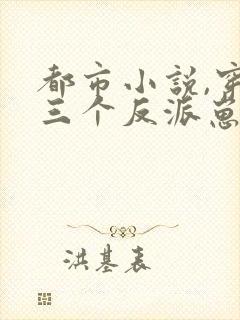 都市小说,穿
三个反派崽
洪基表